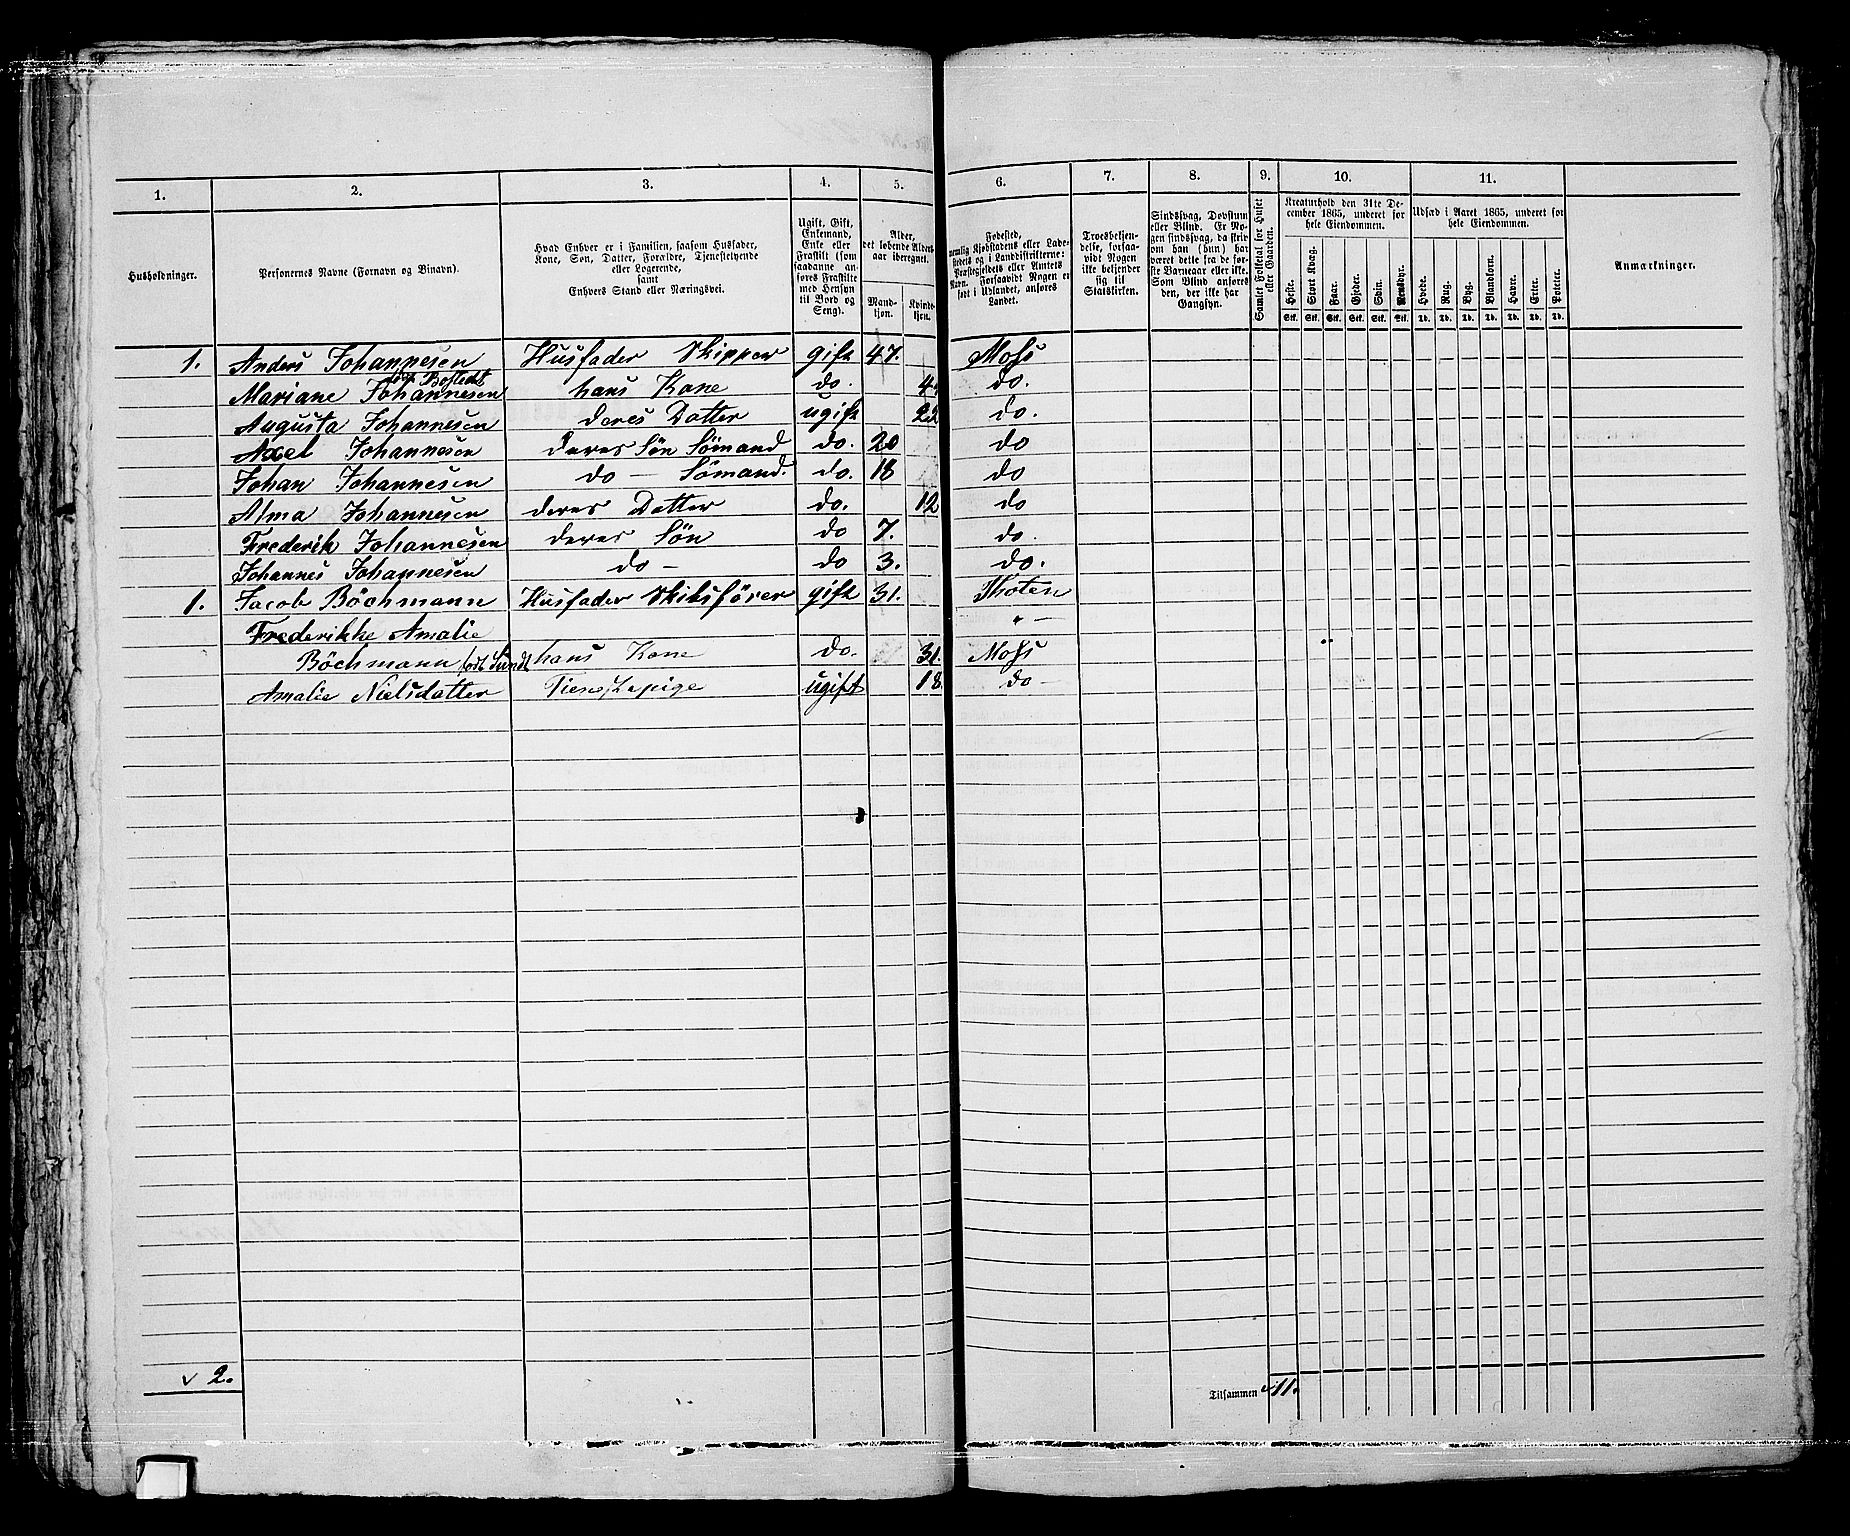 1. 2. 3. 4. 5. 6. 7. 8. 9. 10. 11.
Husholdninger.
Personernes Navne (Fornavn og Binavn).
Hvad Enhver er i Familien, saasom Husfader,
Kone, Søn, Datter, Forældre, Tjenestetyende
eller Logerende,
samt
Enhvers Stand eller Næringsvei.
Ugift, Gift,
Enkemand,
Enke eller
Fraskilt (som
saadanne an-
føres Fraskilte
med Hensyn
til Bord og
Seng).
Alder,
det løbende Alders-
aar iberegnet.
Mand-
kjøn.
Kvinde-
kjøn.
Fødested,
nemlig Kjøbstadens eller Lade-
stedets og i Landdistrikterne:
Præstegjeldets eller Amtets
Navn. Forsaavidt Nogen er
født i Udlandet, anføres
Landet.
Troesbekjen-
delse, forsaa-
vidt Nogen
ikke bekjender
sig til
Statskirken.
Sindssvag, Døvstum
eller Blind. Er No-
gen sindssvag, da skriv
om han (hun) har
været dette fra de før-
ste Barneaar eller ikke.
Som Blind anføres
den, der ikke har
Gangsyn.
Samlet Folketal for Huset
eller Gaarden.
Kreaturhold den 31te De-
cember 1865, underet for
hele Eiendommen.
Heste. Stort Kvæg. Faar. Gjeder. Svin. Rensdyr.
Stk. Stk. Stk. Stk. Stk. Stk.
Udsæd i Aaret 1865, underet for
hele Eiendommen.
Hvede. Rug. Byg. Blandkorn. Havre. Erter. Poteter.
Td. Td. Td. Td. Td. Td. Td.
Anmærkninger.
1. Anders Johannesen Husfader Skipper gift 47. Moss
Bostedt
Mariane Johannesen hans Kone do. do.
Augusta Johannesen deres Datter ugift 22 do.
Axel Johannesen deres Søn Sømand do. 20 do
Johan Johannesen do — Sømand. do. 18 do
Alma Johannesen deres Datter do. 12 do
Frederik Johannesen deres Søn do 7. do.
Johannes Johannesen do — do 3. do.
1. Jacob Böchmann Husfader Skibsfører gift 31. Thoten
Frederikke Amalie
Böchmann født Sundt hans Kone do. 31. Moss
Amalie Nielsdatter Tienestepige ugift 18. do —
v 2.
Tilsammen v 11.